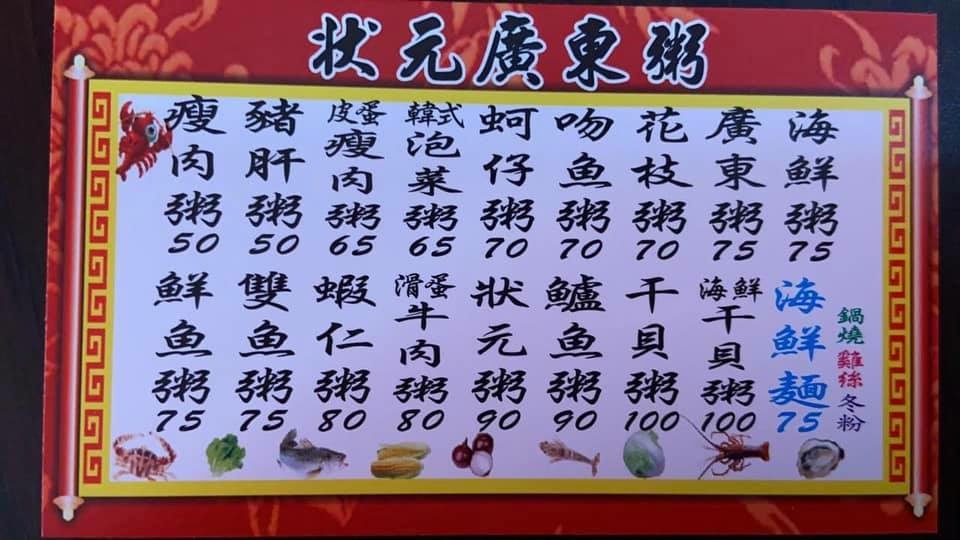 状元廣東粥
瘦肉粥50
豬肝粥50
皮蛋瘦肉粥65
韓式泡菜粥65
蚵仔粥70
吻魚粥70
花枝粥70
廣東粥75
海鮮粥75
鮮魚粥75
雙魚粥75
蝦仁粥80
滑蛋牛肉粥80
状元粥90
鱸魚粥90
干貝粥100
海鮮干貝粥100
海鮮麵75
鍋燒雞絲冬粉